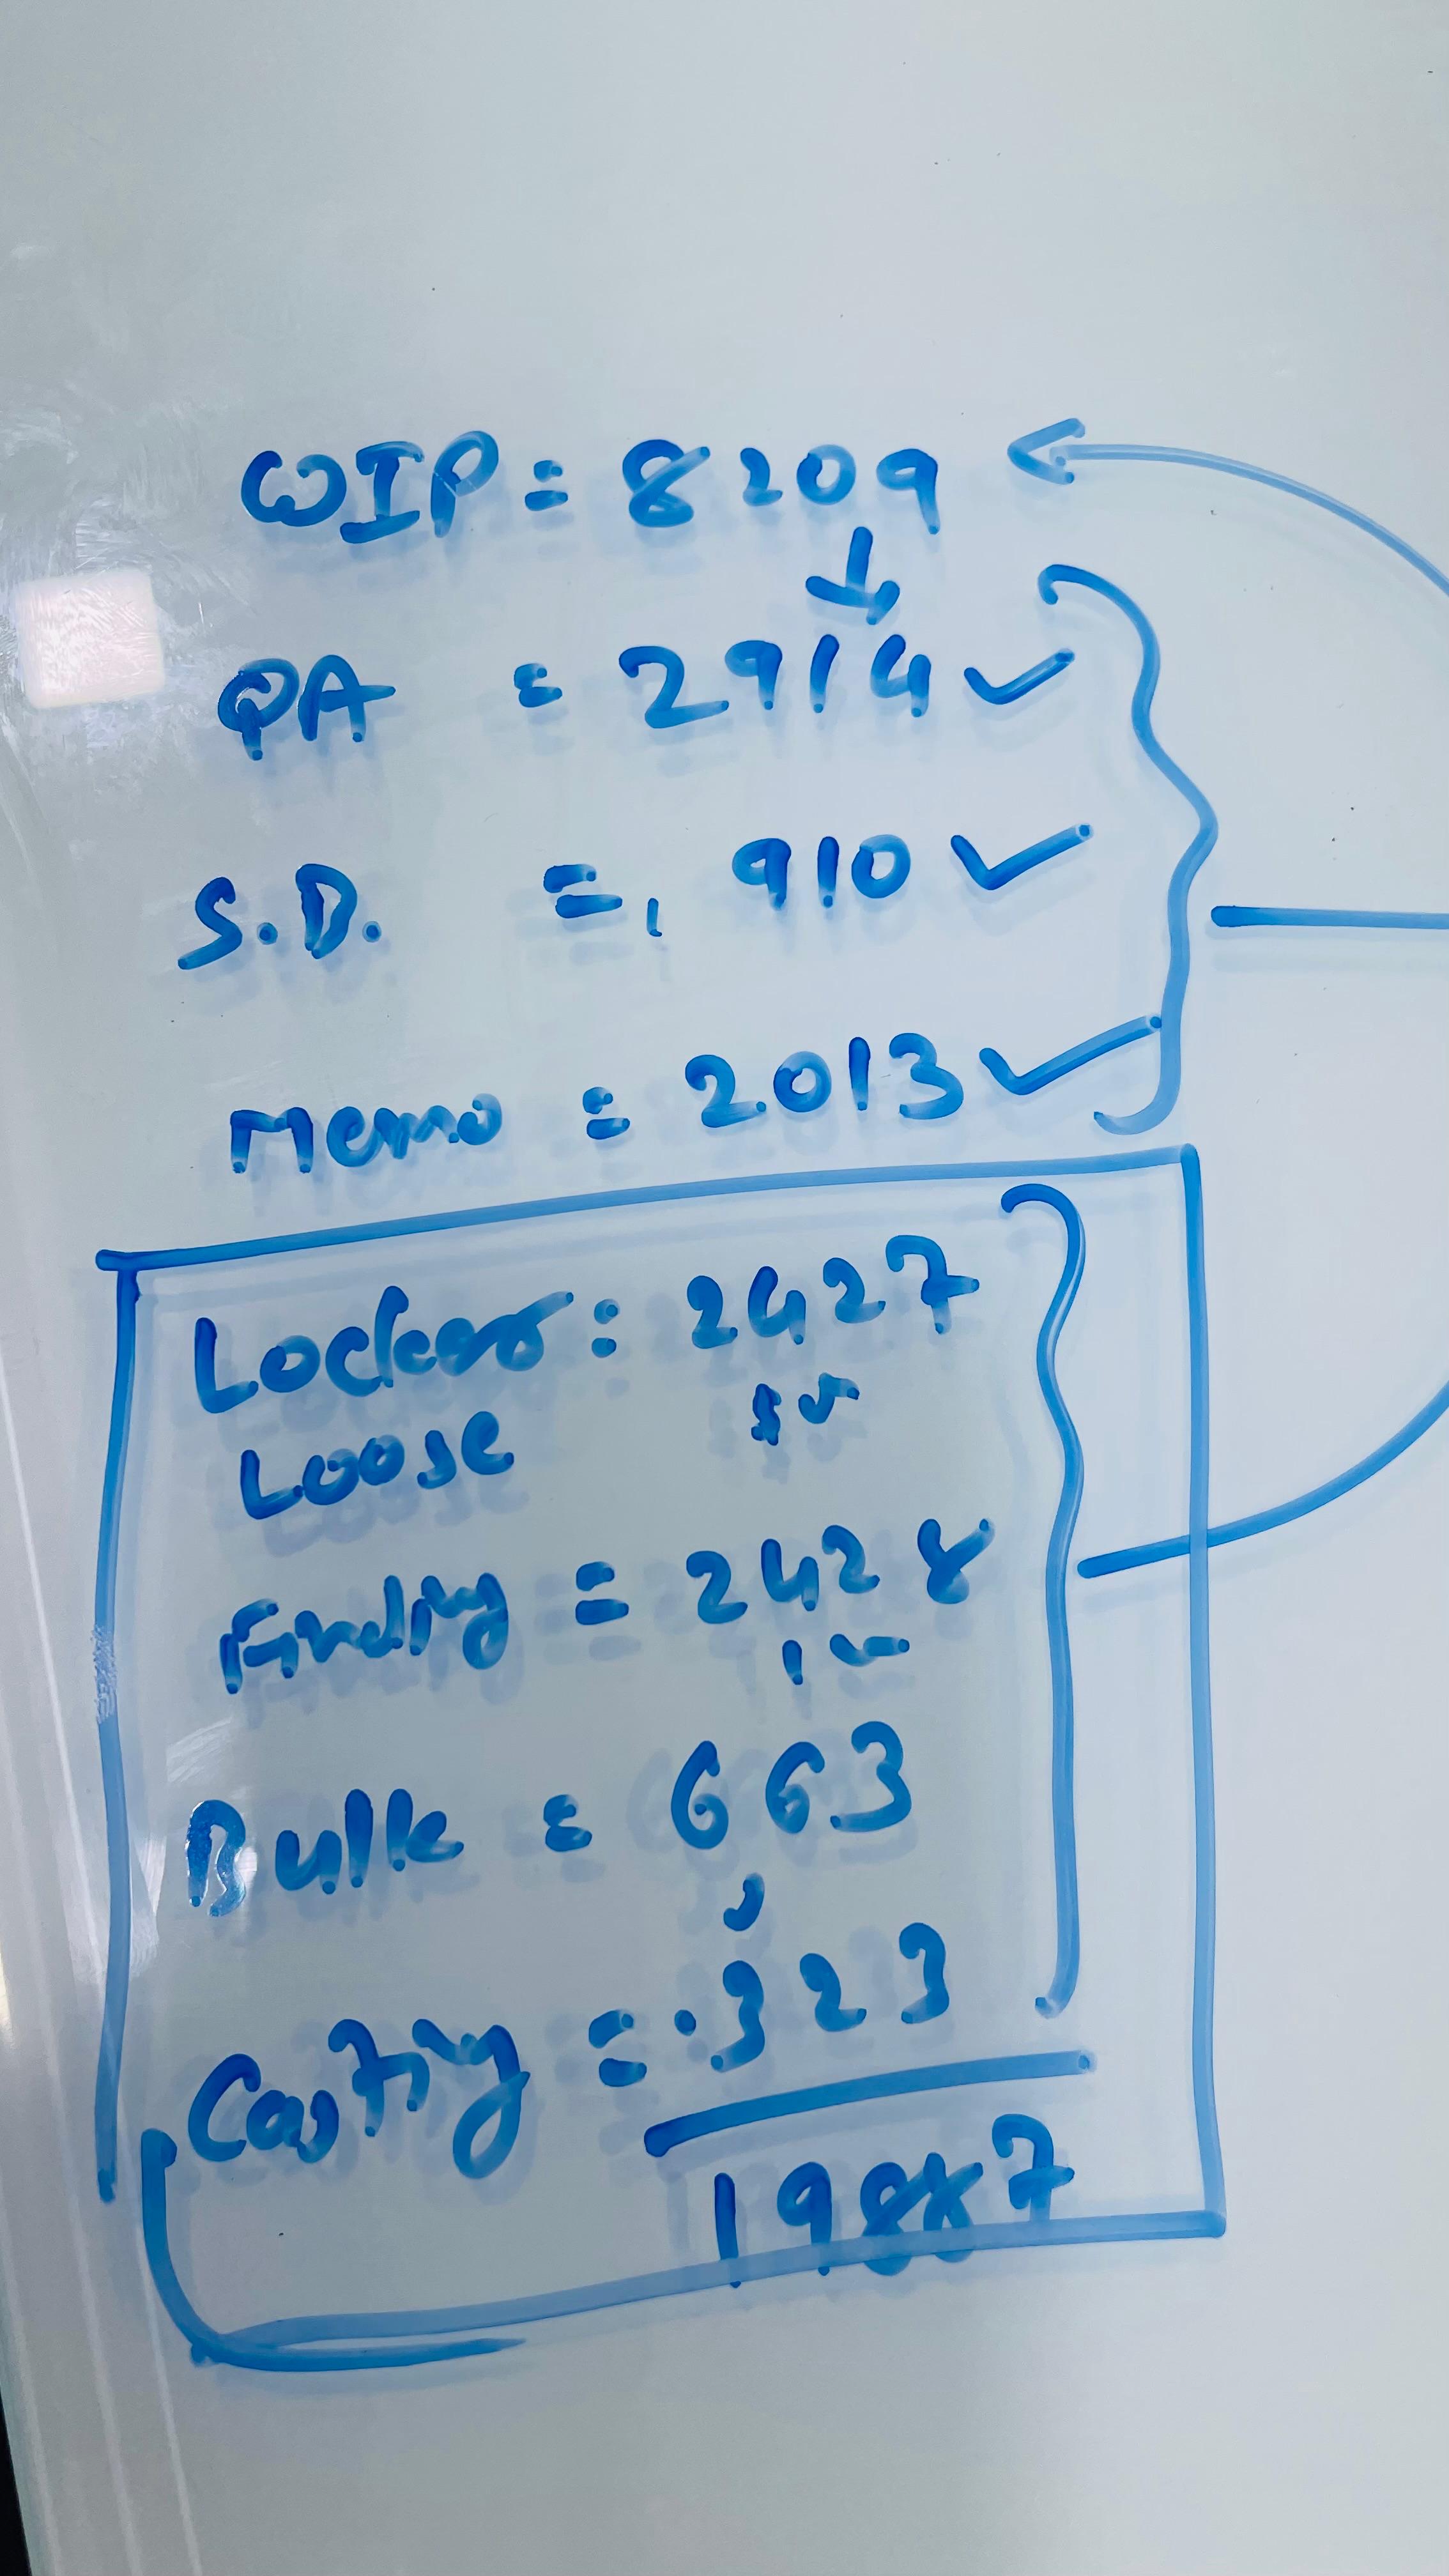 WIP = 8209
QA = 2914 ✓
S.D. = 910 ✓
Memo = 2013 ✓
Locker : 2427
Loose
Finding = 2428
Bulk = 663
Casting = 323
19887